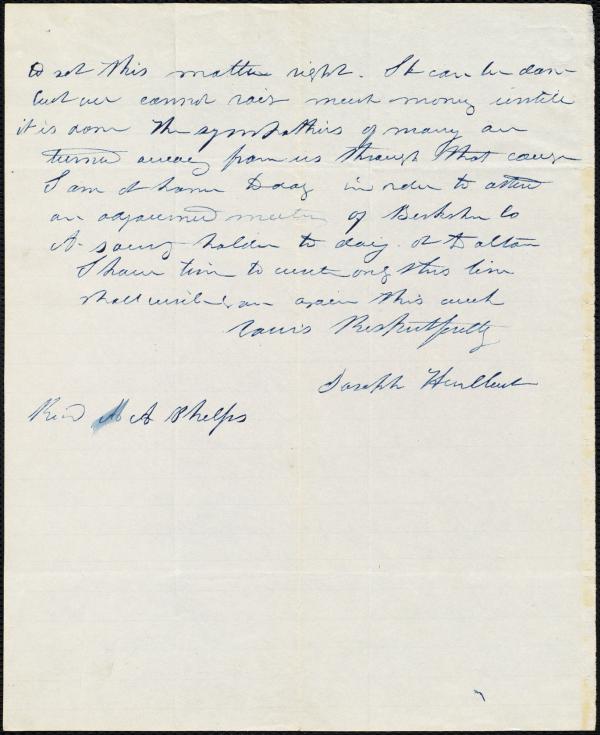 to set this matter right. It can be done
but we cannot rais much money untill
it is done The sympathies of many are
turned away from us through that cause
I am at home to day in order to attend
an adjourned meeting of Berkshire Co
A. Society holden to day at Dalton
I have time to write only this line
shall write you again this week
Yours Respectfully
Joseph Hurlbut
Revd A A Phelps